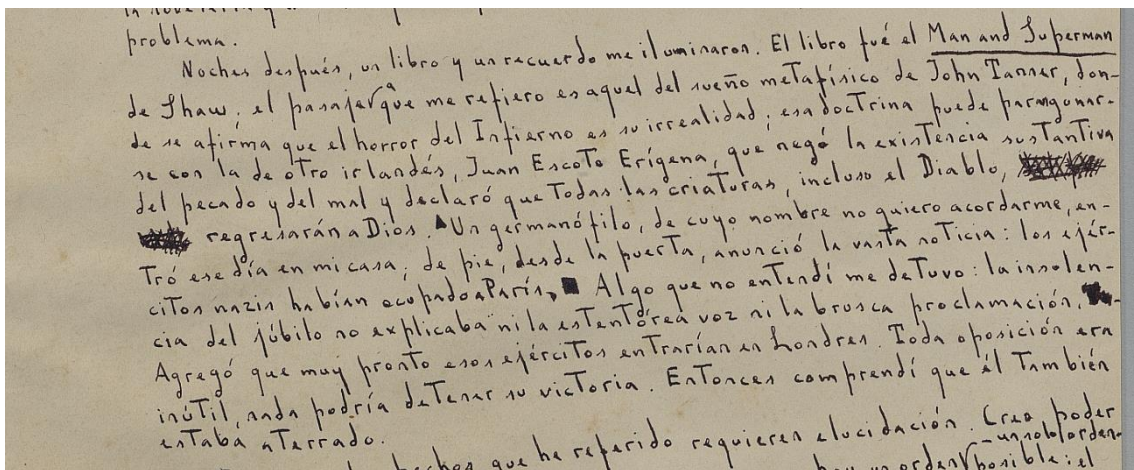 problema.
Noches después, un libro y un recuerdo me iluminaron. El libro fué el Man and Superman
de Shaw; el pasaje a que me refiero es aquel del sueño metafísico de John Tanner, don-
de se afirma que el horror del Infierno es su irrealidad; esa doctrina puede parangonar-
se con la de otro irlandés, Juan Escoto Erígena, que negó la existencia sustantiva
del pecado y del mal y declaró que todas las criaturas, incluso el Diablo,
regresarán a Dios. Un germanófilo, de cuyo nombre no quiero acordarme, en-
tró ese día en mi casa; de pie, desde la puerta, anunció la vasta noticia: los ejér-
citos nazis habían ocupado a París. Algo que no entendí me detuvo: la insolen-
cia del júbilo no explicaba ni la estentórea voz ni la brusca proclamación.
Agregó que muy pronto esos ejércitos entrarían en Londres. Toda oposición era
inútil, nada podría detener su victoria. Entonces comprendí que él también
estaba aterrado.
hechos que he referido requieren elucidación. Creo poder
un solo orden
hay un orden posible: el